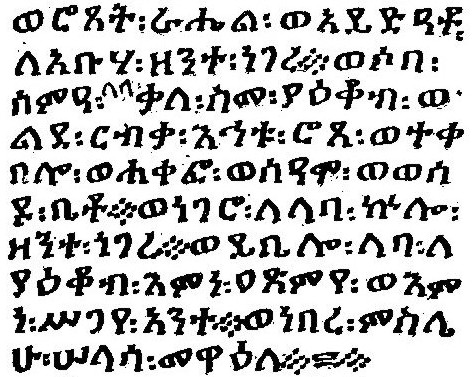 ወሮጸት፡ራሔል፡ወአይድዓቶ፡
ለአቡሃ፡ዘንተ፡ነገረ፨ወሶበ፡
ሰምዓ፡ላባ፡ቃለ፡ስመ፡ያዕቆብ፡ወ
ልደ፡ርብቃ፡እኅቱ፡ሮጸ፡ወተቀ
በሎ፡ወሐቀፎ፡ወሰዓሞ፡ወወሰ
ዶ፡ቤቶ፨ወነገሮ፡ለላባ፡ኵሎ፡
ዘንተ፡ነገረ፨ወይቤሎ፡ላባ፡ለ
ያዕቆብ፡እምነ፡ዐጽምየ፡ወእም
ነ፡ሥጋየ፡አንተ፨ወነበረ፡ምስሌ
ሁ፡ሠላሰ፡መዋዕለ፨=፨